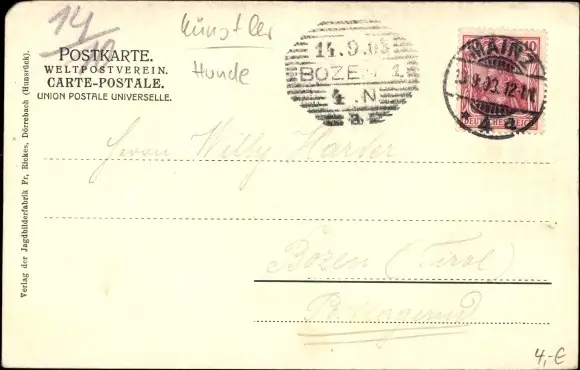 14/
Künstler
Hunde
POSTKARTE.
WELTPOSTVEREIN.
CARTE-POSTALE.
UNION POSTALE UNIVERSELLE.
14.9.03
BOZEN 1
4.N
a
MAINZ
9.03.12-1N
a
10
DEUTSCHES REICH
Herrn Willy Harder
Bozen (Tirol)
Verlag der Jagdbilderfabrik Fr. Rickes, Dörrebach (Hunsrück).
4,-€